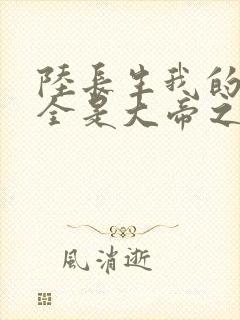 陸長生我的
全是大帝之
風消逝